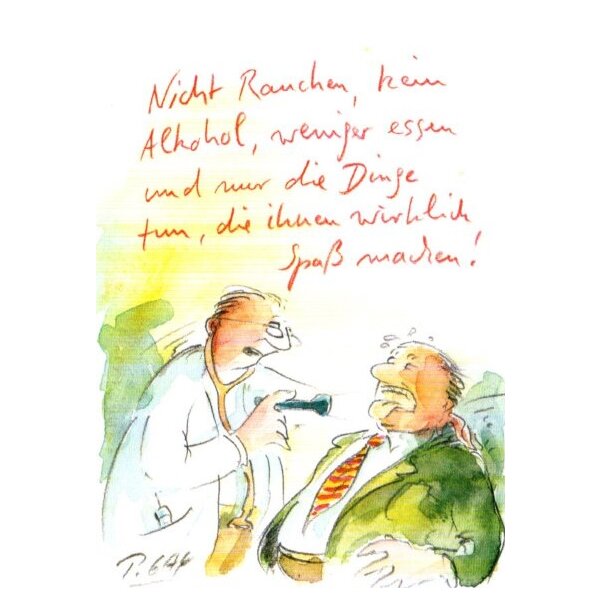 Nicht Rauchen, kein
Alkohol, weniger essen
und nur die Dinge
tun, die ihnen wirklich
Spaß machen!
P. GAY